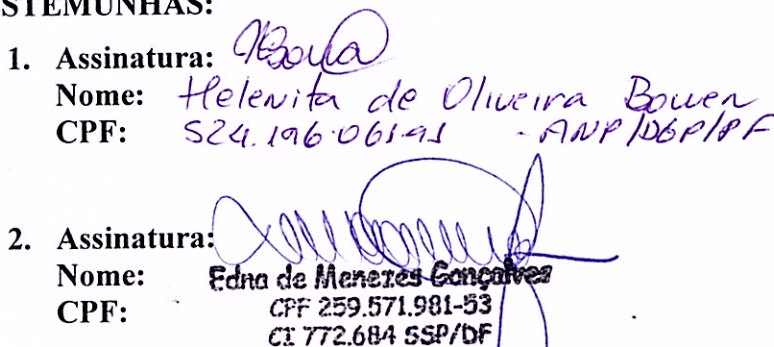 STEMUNHAS:
1. Assinatura:
Nome: Helenita de Oliveira Bowen
CPF: 524.196.061-91 - ANP/DGP/PF
2. Assinatura:
Nome: Edna de Menezes Gonçalves
CPF: CPF 259.571.981-53
CI 772.684 SSP/DF